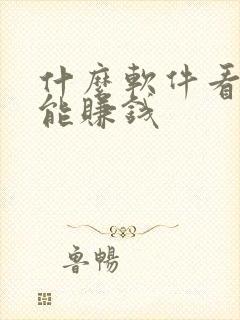 什麼軟件看
能賺錢
魯暢